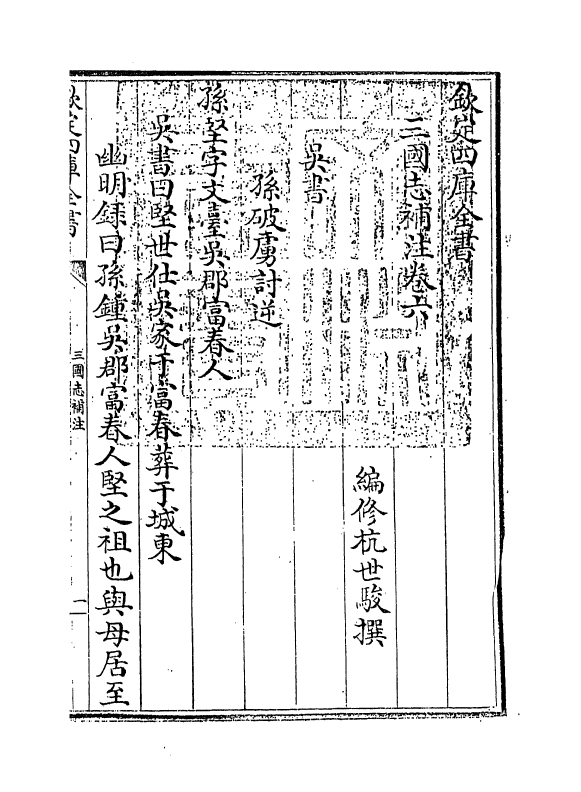 欽定四庫全書
三國志補注卷六
編修杭世駿撰
吳書
孫破虜討逆
孫堅字文臺吳郡富春人
吳書曰堅世仕吳家于富春葬于城東
幽明録曰孫鍾吳郡富春人堅之祖也與母居至
欽定四庫全書
三國志補注
一